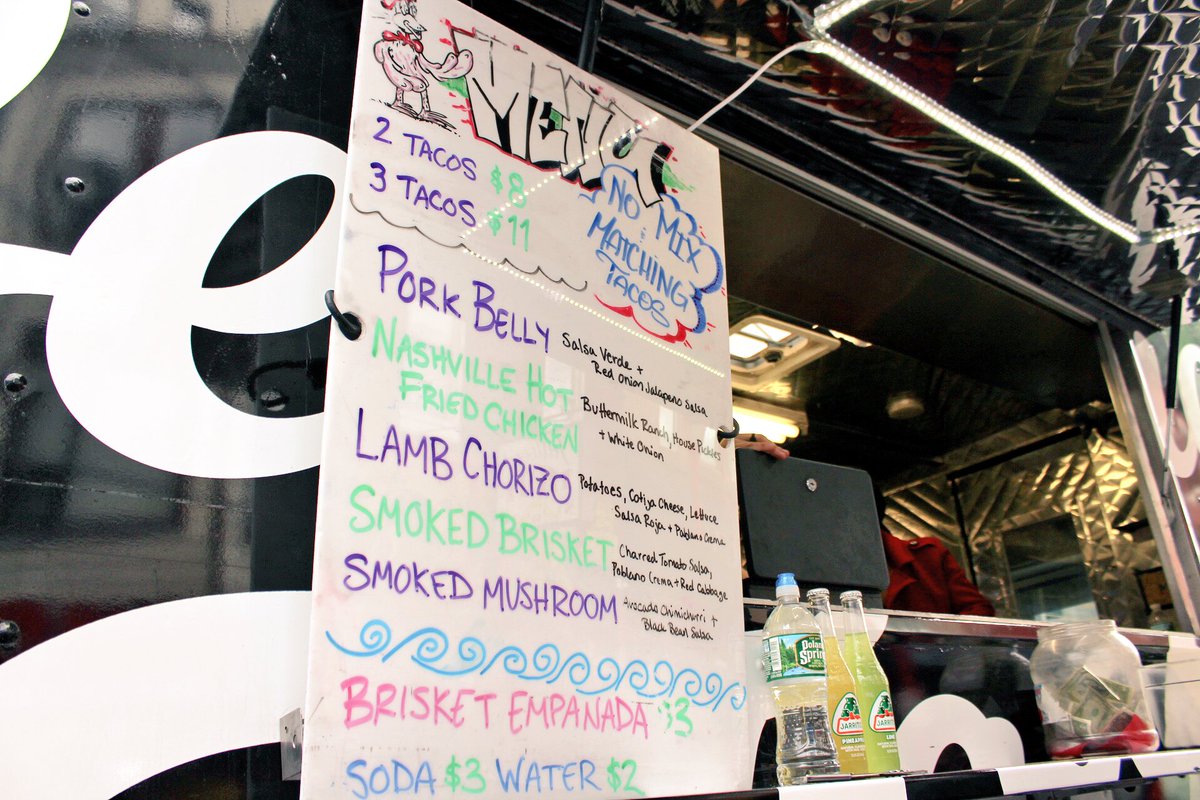 Menu
2 TACOS $8
3 TACOS $11
NO MIX
&
MATCHING
TACOS
PORK BELLY
Salsa Verde +
Red Onion Jalapeno Salsa
NASHVILLE HOT
FRIED CHICKEN
Buttermilk Ranch, House Pickles
+ White Onion
LAMB CHORIZO
Potatoes, Cotija Cheese, Lettuce
Salsa Roja + Poblano Crema
SMOKED BRISKET
Charred Tomato Salsa,
Poblano Crema + Red Cabbage
SMOKED MUSHROOM
Avocado Chimichurri +
Black Bean Salsa
BRISKET EMPANADA $3
SODA $3 WATER $2
Poland
Spring
JARRITOS
PINEAPPLE
JARRITOS
LIME
e